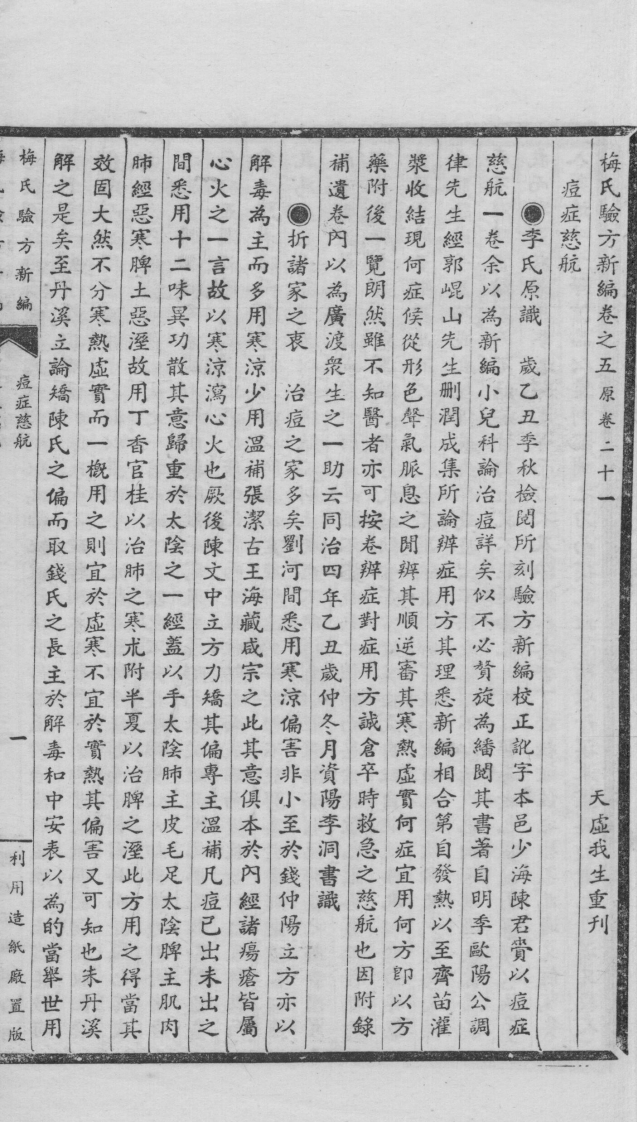 梅氏驗方新編卷之五 原卷二十一 天虛我生重刊
痘症慈航
●李氏原識 歲乙丑季秋檢閱所刻驗方新編校正訛字本邑少海陳君賚以痘症
慈航一卷余以為新編小兒科論治痘詳矣似不必贅旋為繙閱其書著自明季歐陽公調
律先生經郭崐山先生刪潤成集所論辨症用方其理悉新編相合第自發熱以至齊苗灌
漿收結現何症候從形色聲氣脈息之閒辨其順逆審其寒熱虛實何症宜用何方卽以方
藥附後一覽朗然雖不知醫者亦可按卷辨症對症用方誠倉卒時救急之慈航也因附錄
補遺卷內以為廣渡眾生之一助云同治四年乙丑歲仲冬月資陽李洞書識
●折諸家之衷 治痘之家多矣劉河間悉用寒涼偏害非小至於錢仲陽立方亦以
解毒為主而多用寒涼少用溫補張潔古王海藏咸宗之此其意俱本於內經諸瘍瘡皆屬
心火之一言故以寒涼瀉心火也厥後陳文中立方力矯其偏專主溫補凡痘已出未出之
間悉用十二味異功散其意歸重於太陰之一經蓋以手太陰肺主皮毛足太陰脾主肌肉
肺經惡寒脾土惡溼故用丁香官桂以治肺之寒朮附半夏以治脾之溼此方用之得當其
效固大然不分寒熱虛實而一概用之則宜於虛寒不宜於實熱其偏害又可知也朱丹溪
解之是矣至丹溪立論矯陳氏之偏而取錢氏之長主於解毒和中安表以為的當舉世用
梅氏驗方新編 痘症慈航 一 利用造紙廠置版